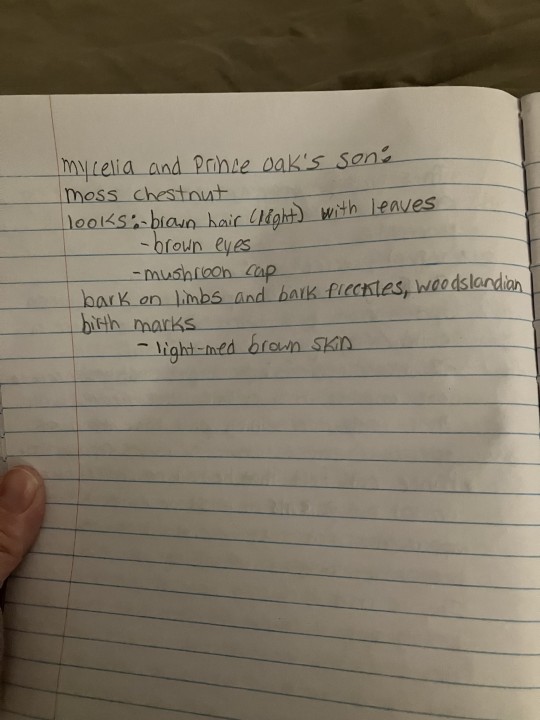 mycelia and Prince oak's son:
moss chestnut
looks:-brown hair (light) with leaves
-brown eyes
-mushroon cap
bark on limbs and bark freckles, woodslandian
birth marks
- light-med brown skin